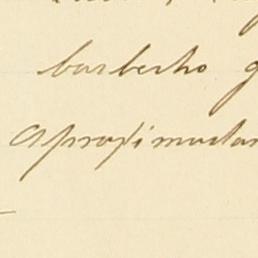 barbecho
Aproximadam